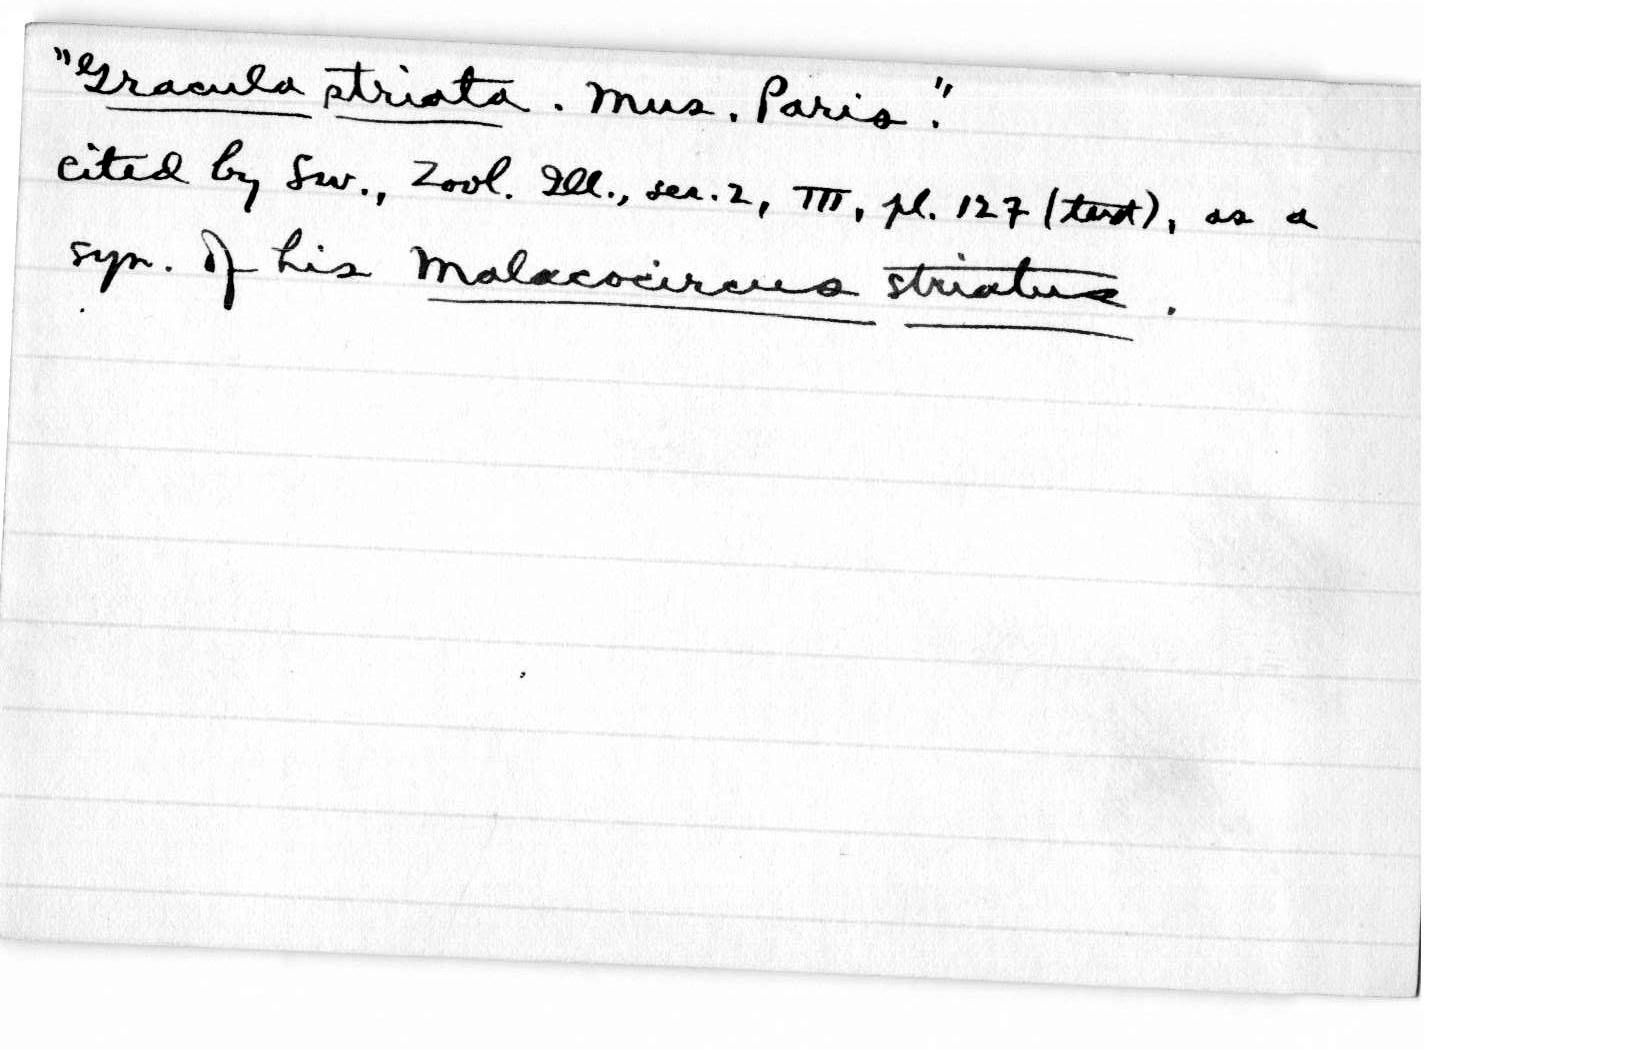 "Gracula striata. Mus. Paris".
cited by Sw., Zool. Ill., ser. 2, III, pl. 127 (text), as a
syn. of his Malacocircus striatus.